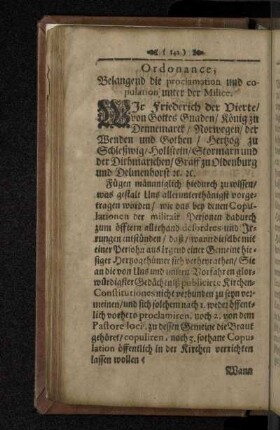 ( 142 )
Ordonance,
Belangend die proclamation und co-
pulation unter der Milice.
WIr Friederich der Vierte/
von Gottes Gnaden/ König zu
Dennemarck/ Norwegen/ der
Wenden und Gothen/ Hertzog zu
Schleßwig/ Hollstein/ Stormarn und
der Dithmarschen/ Graff zu Oldenburg
und Delmenhorst ꝛc. ꝛc.
Fügen männiglich hiedurch zu wissen/
was gestalt Uns allerunterthänigst vorge-
tragen worden/ wie das bey denen Copu-
lationen der militair Personen dadurch
zum öfftern allerhand desordres und Ir-
rungen entstünden/ daß/ wann dieselbe mit
einer Persohn aus irgend einer Gemeint hie-
siger Hertzogthümer sich verheyrathen/ Sie
an die von Uns und unsern Vorfahren glor-
würdigster Gedächtniß publicirte Kirchen-
Constitutiones nicht verbunden zu seyn ver-
meinen/ und sich solchem nach 1. weder öffent-
lich vorhero proclamiren, noch 2. von dem
Pastore loci, zu dessen Gemeine die Braut
gehöret/ copuliren, noch 3. sothane Copu-
lation öffentlich in der Kirchen verrichten
lassen wollen/
Wann